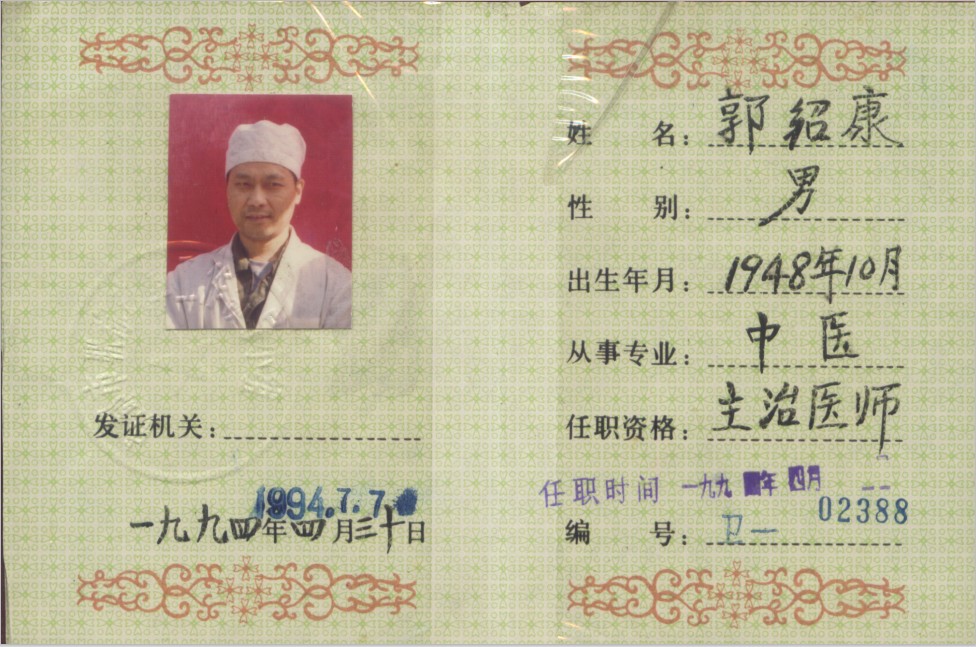 发证机关：
1994.7.7
一九九四年四月三十日
姓 名：郭绍康
性 别：男
出生年月：1948年10月
从事专业：中医
任职资格：主治医师
任职时间 一九九 年 月
编 号：卫一 02388